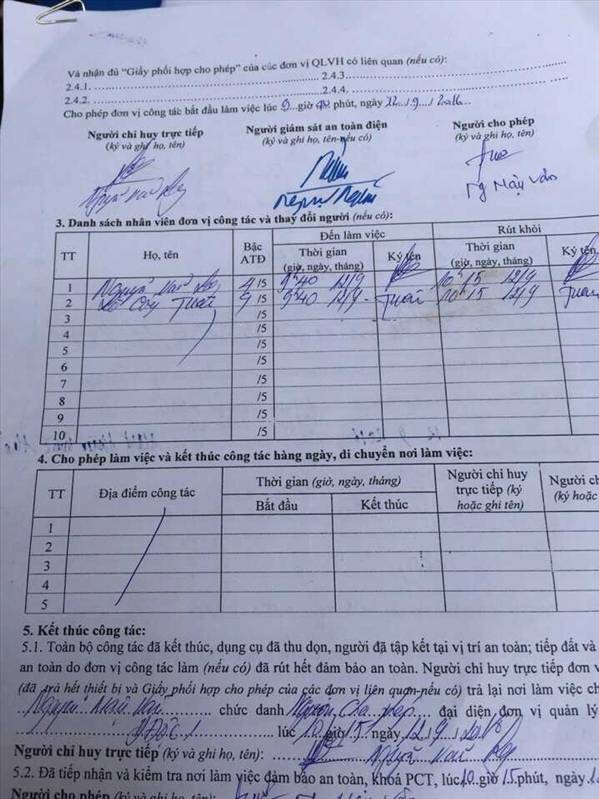 Và nhận đủ “Giấy phối hợp cho phép” của các đơn vị QLVH có liên quan (nếu có):
2.4.1. 2.4.3.
2.4.2. 2.4.4.
Cho phép đơn vị công tác bắt đầu làm việc lúc 9 giờ 40 phút, ngày 12 / 9 / 2016
Người chỉ huy trực tiếp Người giám sát an toàn điện Người cho phép
(ký và ghi họ, tên) (ký và ghi họ, tên-nếu có) (ký và ghi họ, tên)
3. Danh sách nhân viên đơn vị công tác và thay đổi người (nếu có):
TT Họ, tên Bậc ATĐ Đến làm việc Rút khỏi
Thời gian (giờ, ngày, tháng) Ký tên Thời gian (giờ, ngày, tháng) Ký tên
1 Nguyễn Văn 4/5 9h40 12/9 10h15 12/9
2 Tuấn 4/5 9h40 12/9 Tuấn 10h15 12/9 Tuấn
3 /5
4 /5
5 /5
6 /5
7 /5
8 /5
9 /5
10 /5
4. Cho phép làm việc và kết thúc công tác hàng ngày, di chuyển nơi làm việc:
TT Địa điểm công tác Thời gian (giờ, ngày, tháng) Người chỉ huy trực tiếp (ký hoặc ghi tên) Người ch
(ký hoặc
Bắt đầu Kết thúc
1
2
3
4
5
5. Kết thúc công tác:
5.1. Toàn bộ công tác đã kết thúc, dụng cụ đã thu dọn, người đã tập kết tại vị trí an toàn; tiếp đất và
an toàn do đơn vị công tác làm (nếu có) đã rút hết đảm bảo an toàn. Người chỉ huy trực tiếp đơn v
(đã trả hết thiết bị và Giấy phối hợp cho phép của các đơn vị liên quan-nếu có) trả lại nơi làm việc ch
chức danh Người cho phép đại diện đơn vị quản lý
lúc 10 giờ 15 ngày 12 / 9 /
Người chỉ huy trực tiếp (ký và ghi họ, tên): Nguyễn Văn
5.2. Đã tiếp nhận và kiểm tra nơi làm việc đảm bảo an toàn, khoá PCT, lúc 10 giờ 15 phút, ngày
Người cho phép (ký và ghi họ, tên):